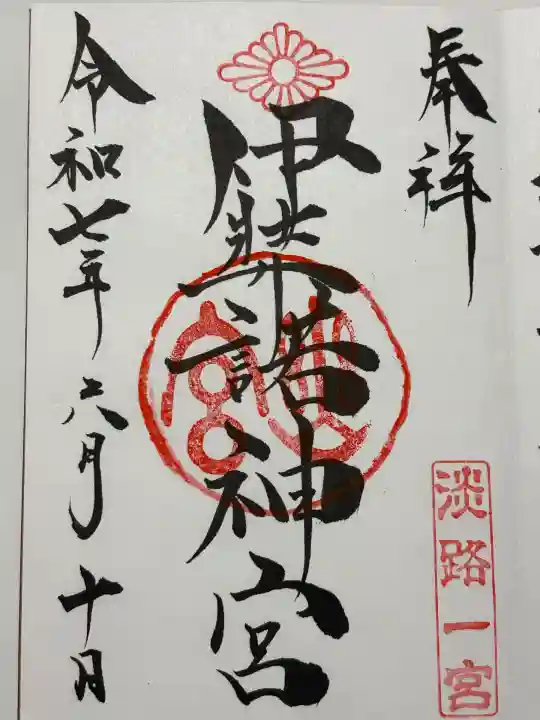 奉拝
淡路一宮
伊弉諾神宮
令和七年六月十日